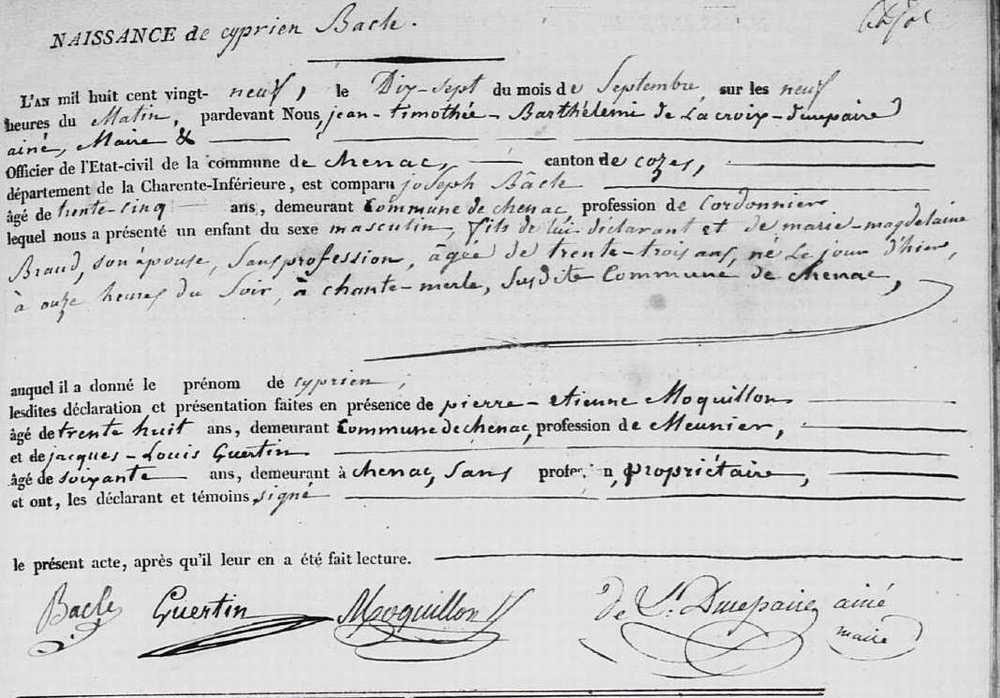 NAISSANCE de cyprien Bacle.
L'AN mil huit cent vingt- neuf, le Dix-sept du mois de Septembre, sur les neuf
heures du Matin, pardevant Nous, jean-timothée-Barthélemi de Lacroix-durepaire
ainé, Maire &
Officier de l'Etat-civil de la commune de chenac, canton de cozes,
département de la Charente-Inférieure, est comparu joseph Bâcle
âgé de trente-cinq ans, demeurant Commune de chenac profession de Cordonnier
lequel nous a présenté un enfant du sexe masculin, fils de lui déclarant et de marie-magdelaine
Braud, son épouse, sans profession, âgée de trente-trois ans, né le jour d'hier,
à onze heures du soir, à chante-merle, susdite Commune de chenac,
auquel il a donné le prénom de cyprien,
lesdites déclaration et présentation faites en présence de pierre-etienne Moquillon
âgé de trente huit ans, demeurant Commune de chenac, profession de Meunier,
et de jacques-Louis Guertin
âgé de soixante ans, demeurant à chenac, sans profes n, propriétaire,
et ont, les déclarant et témoins signé
le présent acte, après qu'il leur en a été fait lecture.
Bacle Guertin Moquillon de Lx Durepaire ainé
maire